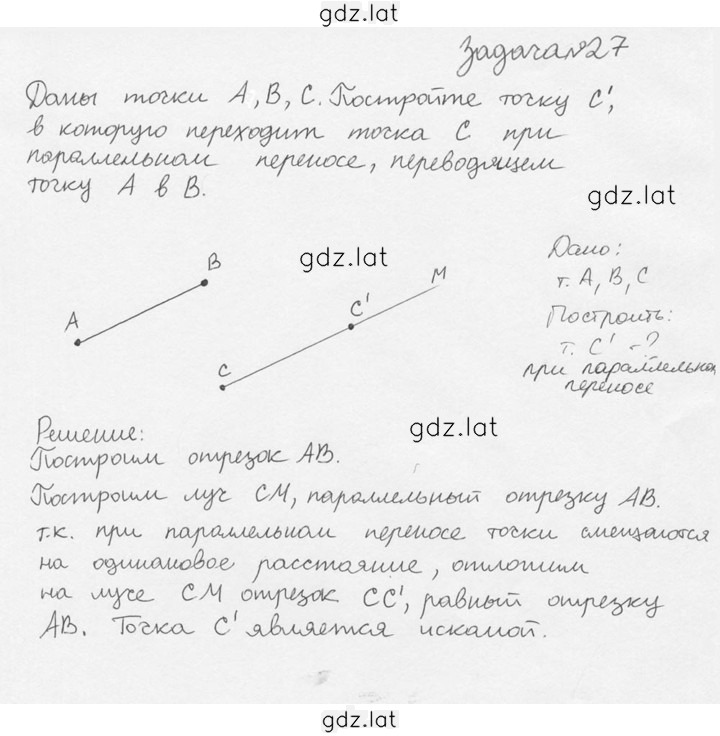 gdz.lat
Задача №27
Даны точки A, B, C. Постройте точку C',
в которую переходит точка C при
параллельном переносе, переводящем
точку A в B.
gdz.lat
Дано:
т. A, B, C
Построить:
т. C' -?
при параллельном
переносе
gdz.lat
B
A
M
C'
C
Решение:
gdz.lat
Построим отрезок AB.
Построим луч CM, параллельный отрезку AB.
т.к. при параллельном переносе точки смещаются
на одинаковое расстояние, отложим
на луче CM отрезок CC', равный отрезку
AB. Точка C' является искомой.
gdz.lat